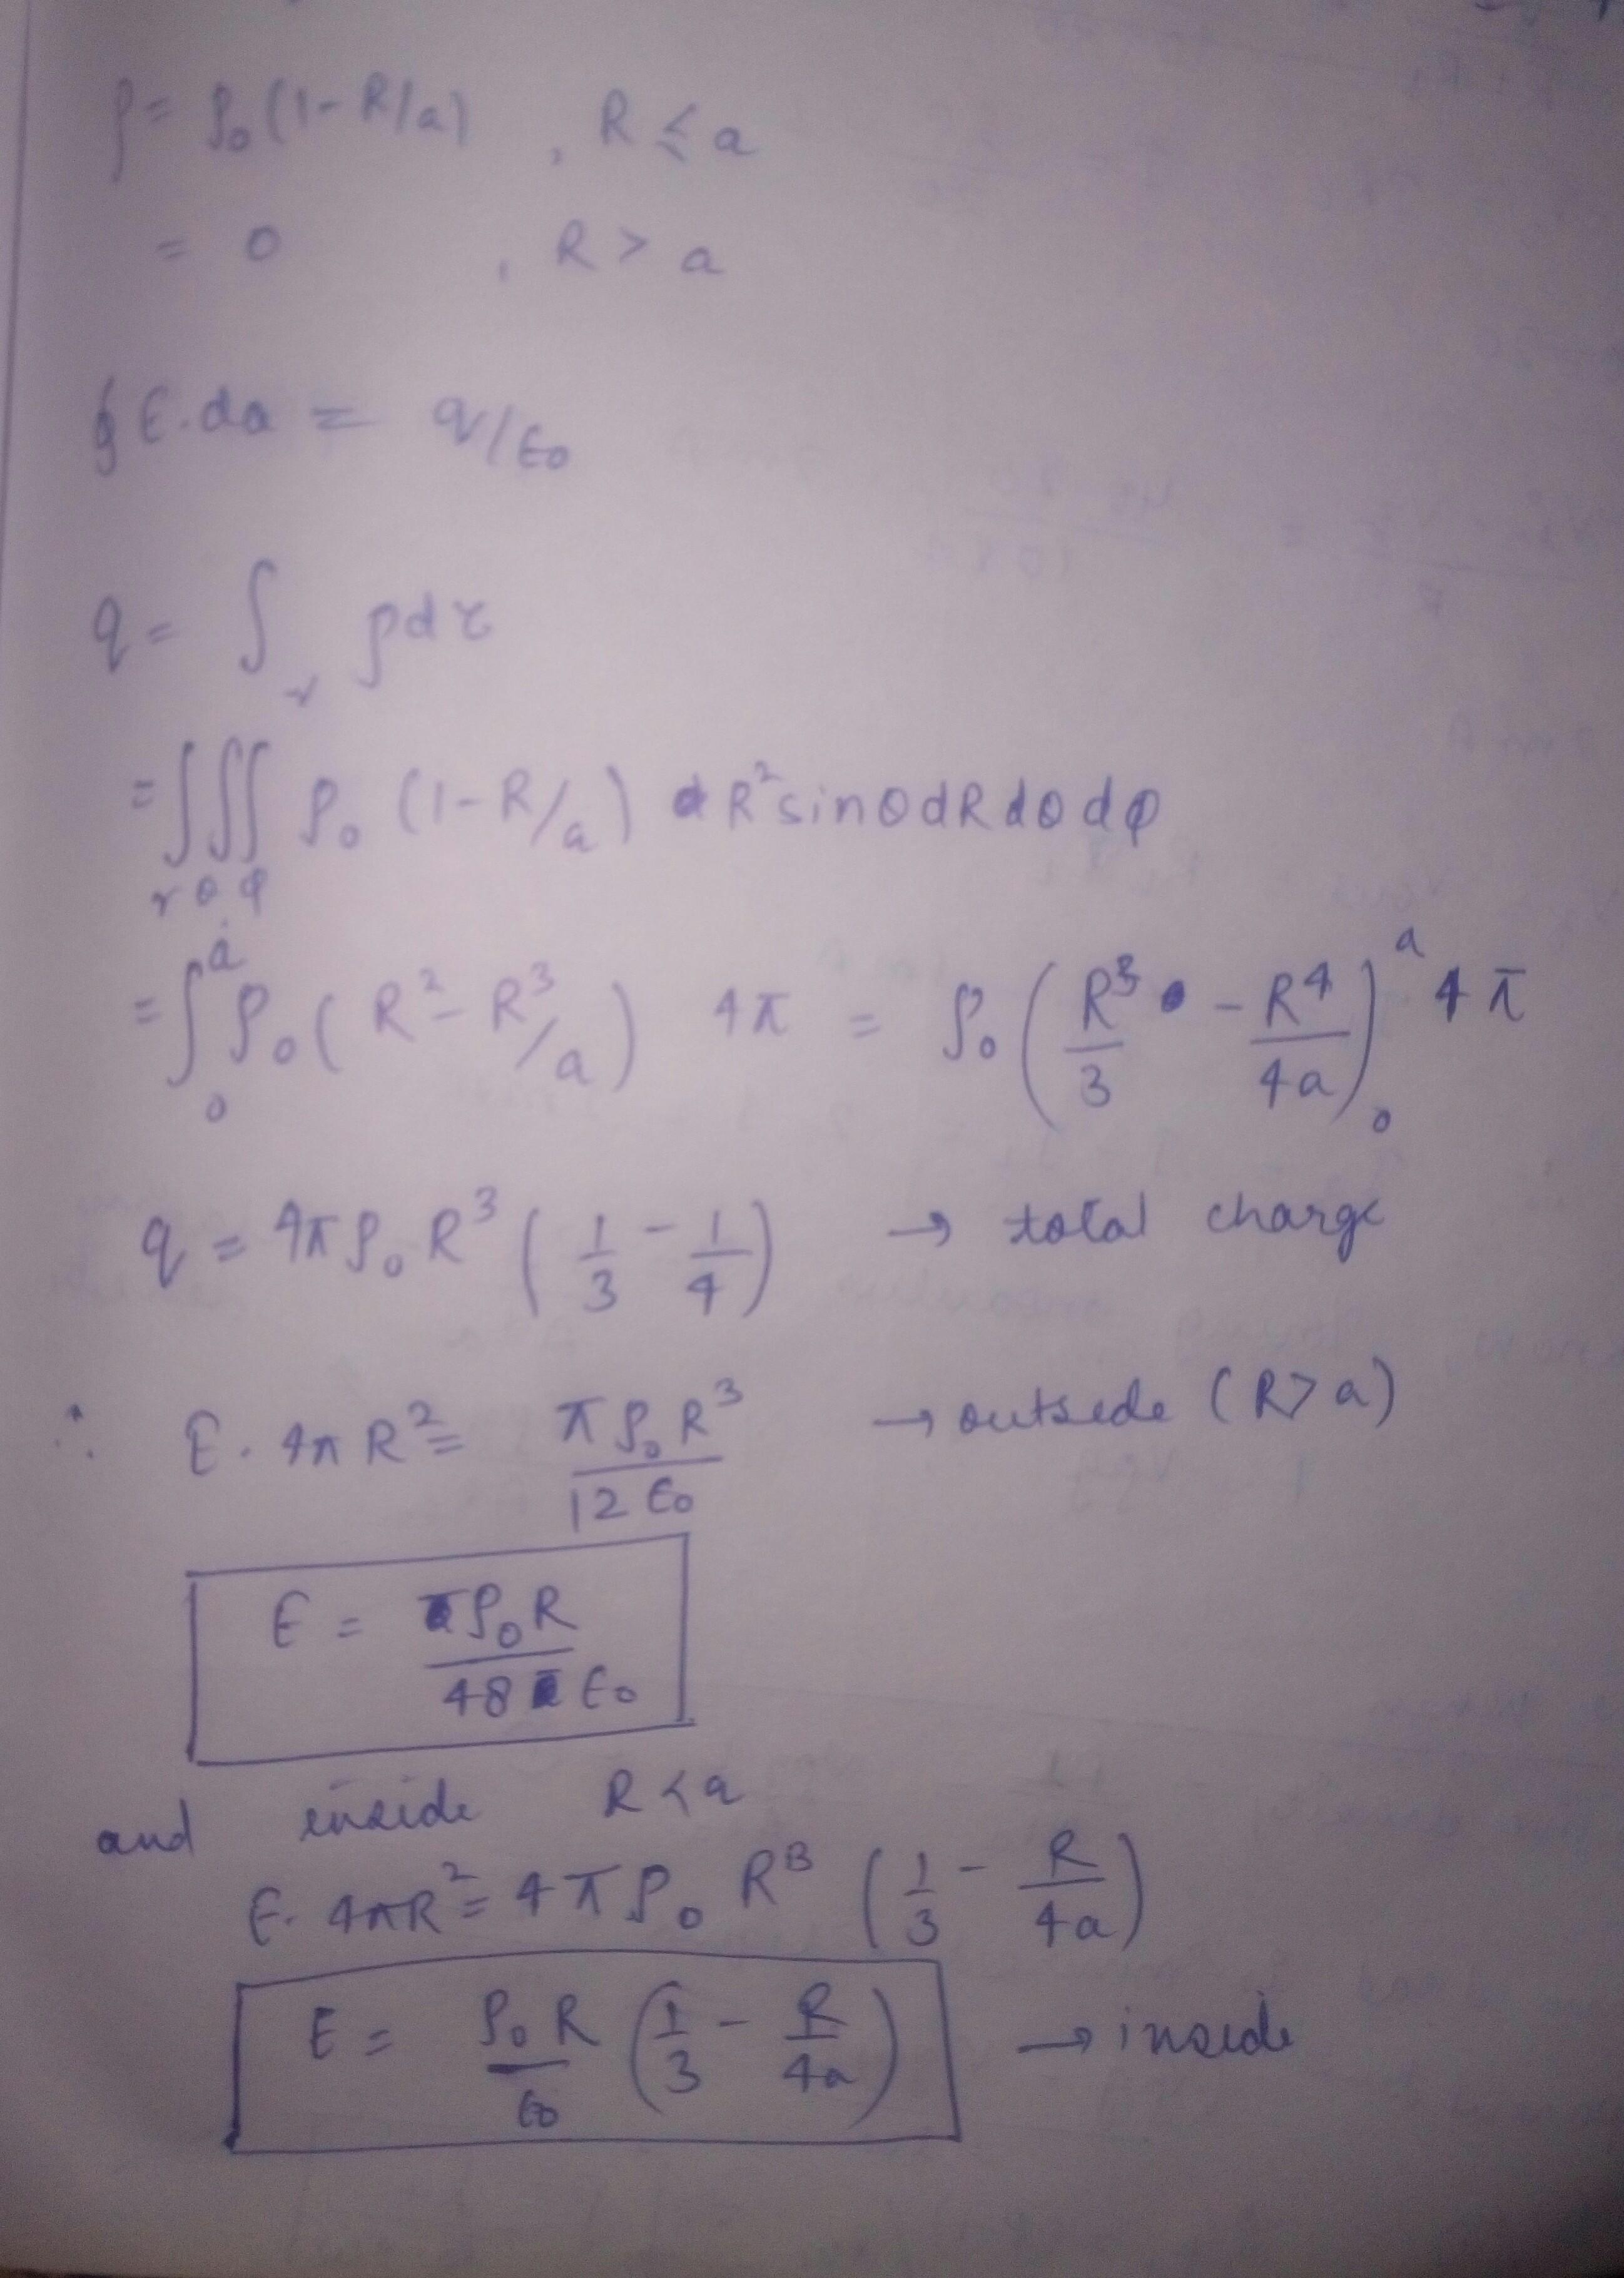 ρ = ρ₀(1 - R/a) , R ≤ a
= 0 , R > a
∮ E.da = q/ε₀
q = ∫ᵥ ρdτ
= ∫∫∫ ρ₀ (1 - R/a) R² sinθ dR dθ dφ
r θ φ
= ∫₀ᵃ ρ₀ (R² - R³/a) 4π = ρ₀ (R³/3 - R⁴/4a)₀ᵃ 4π
q = 4πρ₀ R³ (1/3 - 1/4) → total charge
∴ E. 4πR² = πρ₀R³/12ε₀ → outside (R > a)
E = ρ₀R/48 ε₀
and inside R < a
E. 4πR² = 4πρ₀ R³ (1/3 - R/4a)
E = ρ₀R/ε₀ (1/3 - R/4a) → inside